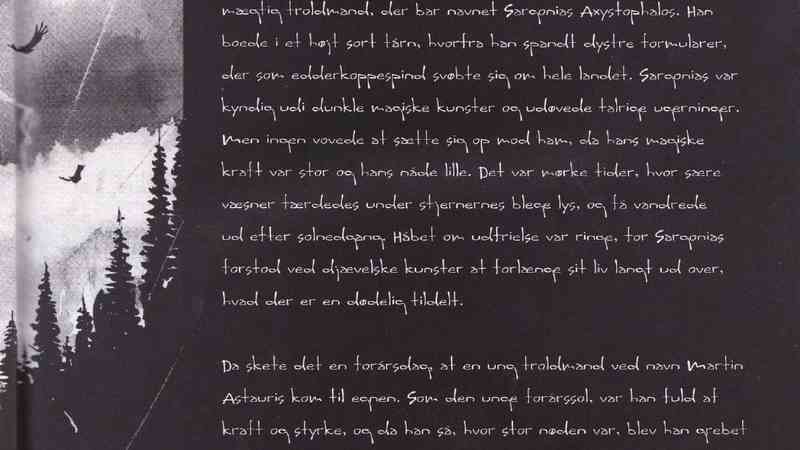 mægtig troldmand, der bar navnet Sargonias Axystophalos. Han
boede i et højt sort tårn, hvorfra han spandt dystre formularer,
der som edderkoppespind svøbte sig om hele landet. Sargonias var
kyndig udi dunkle magiske kunster og udøvede talrige ugerninger.
Men ingen vovede at sætte sig op mod ham, da hans magiske
kraft var stor og hans nåde lille. Det var mørke tider, hvor sære
væsner færdedes under stjernernes blege lys, og få vandrede
ud efter solnedgang. Håbet om udfrielse var ringe, for Sargonias
forstod ved djævelske kunster at forlænge sit liv langt ud over,
hvad der er en dødelig tildelt.
Da skete det en forårsdag, at en ung troldmand ved navn Martin
Astauris kom til egnen. Som den unge forårssol, var han fuld af
kraft og styrke, og da han så, hvor stor nøden var, blev han grebet